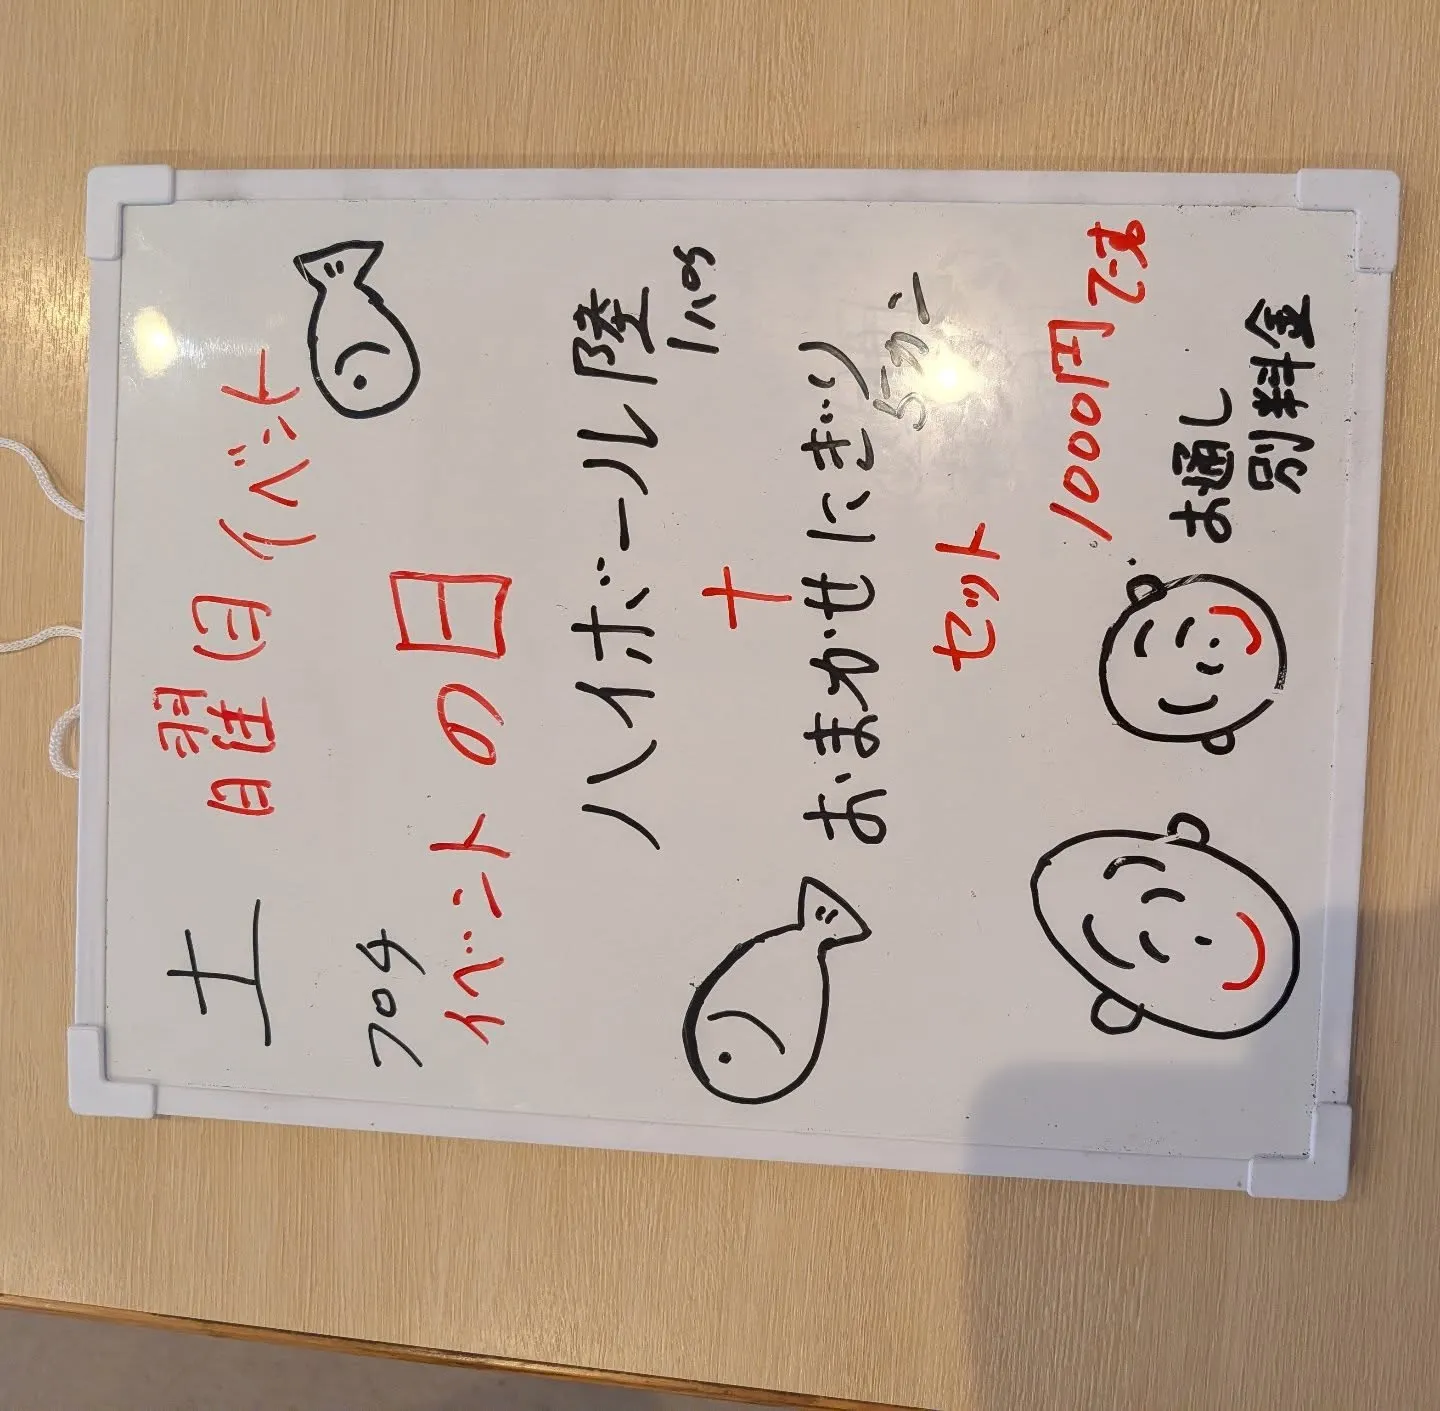 土曜日イベント
プロチ
イベントの日
ハイボール 陸
1ハイ
+
おまかせにぎり
5カン
セット
1000円です
お通し
別料金